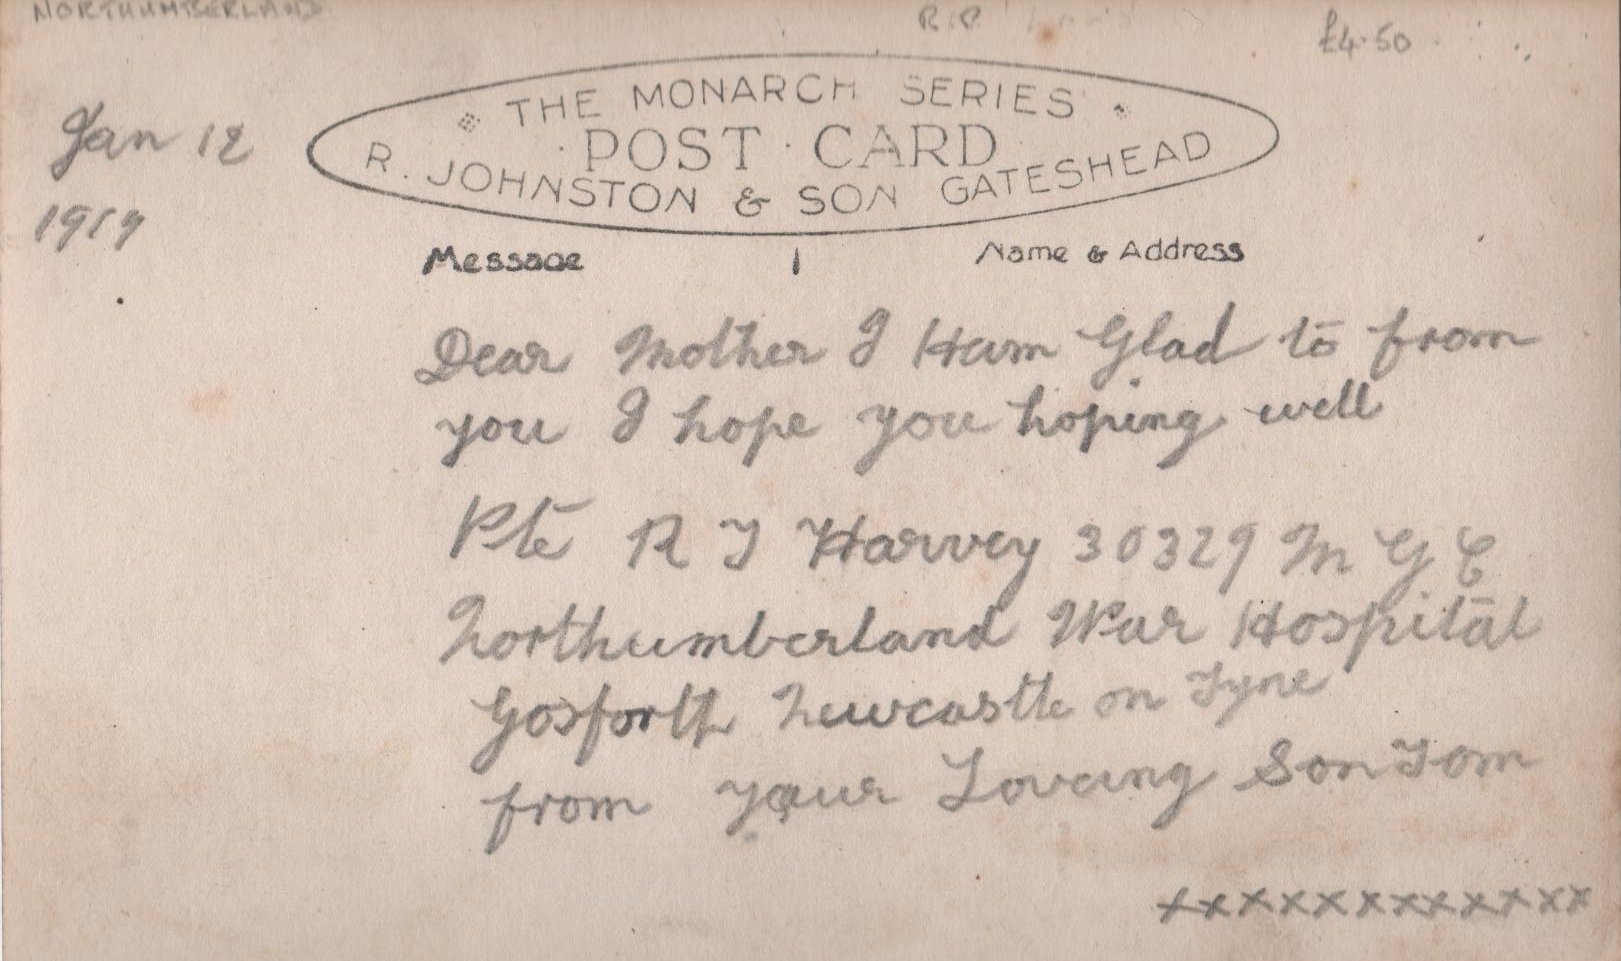 NORTHUMBERLAND
R.P.
£4.50
Jan 12
1917
THE MONARCH SERIES
POST CARD
R. JOHNSTON & SON GATESHEAD
Message Name & Address
Dear Mother I Ham Glad to from
you I hope you hoping well
Pte R T Harvey 30329 M G C
Northumberland War Hospital
Gosforth Newcastle on Tyne
from your Loveing Son Tom
xxxxxxxxxxxx